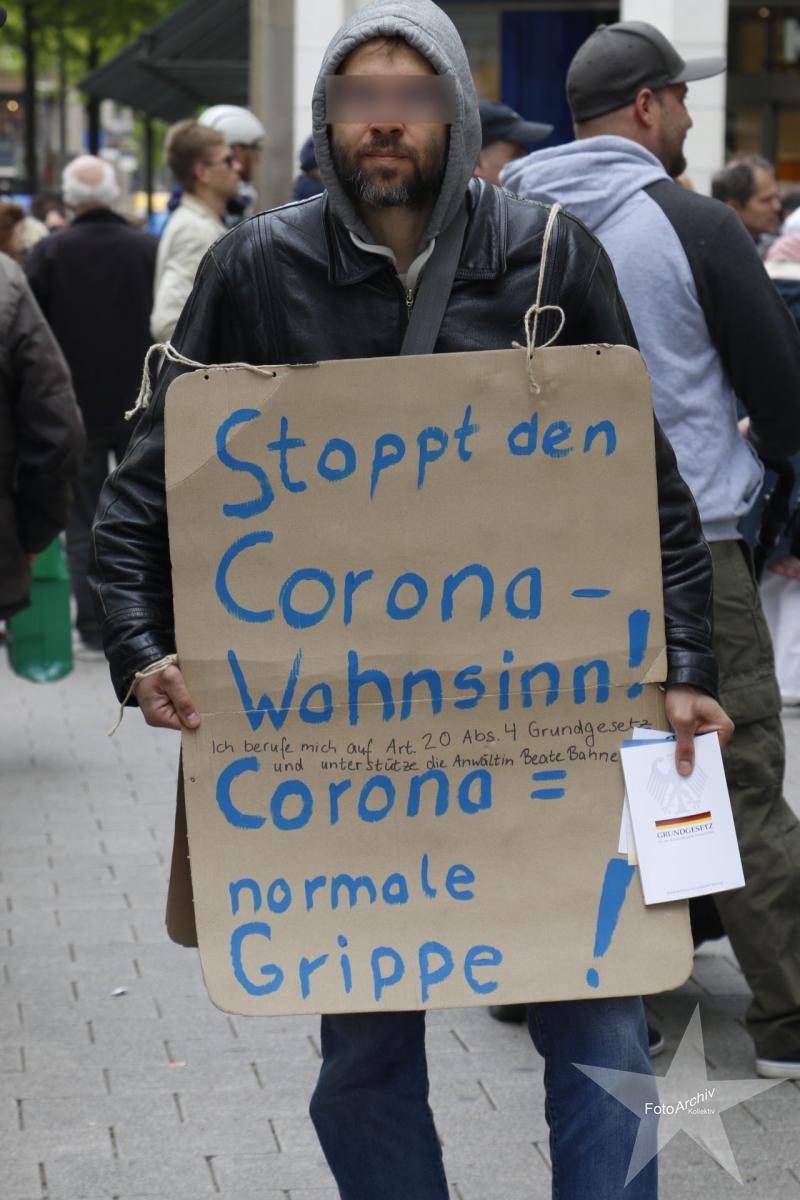 Stoppt den
Corona-
Wahnsinn!
Ich berufe mich auf Art. 20 Abs. 4 Grundgesetz
und unterstütze die Anwältin Beate Bahne
Corona =
normale
Grippe !
GRUNDGESETZ
FotoArchiv
Kollektiv